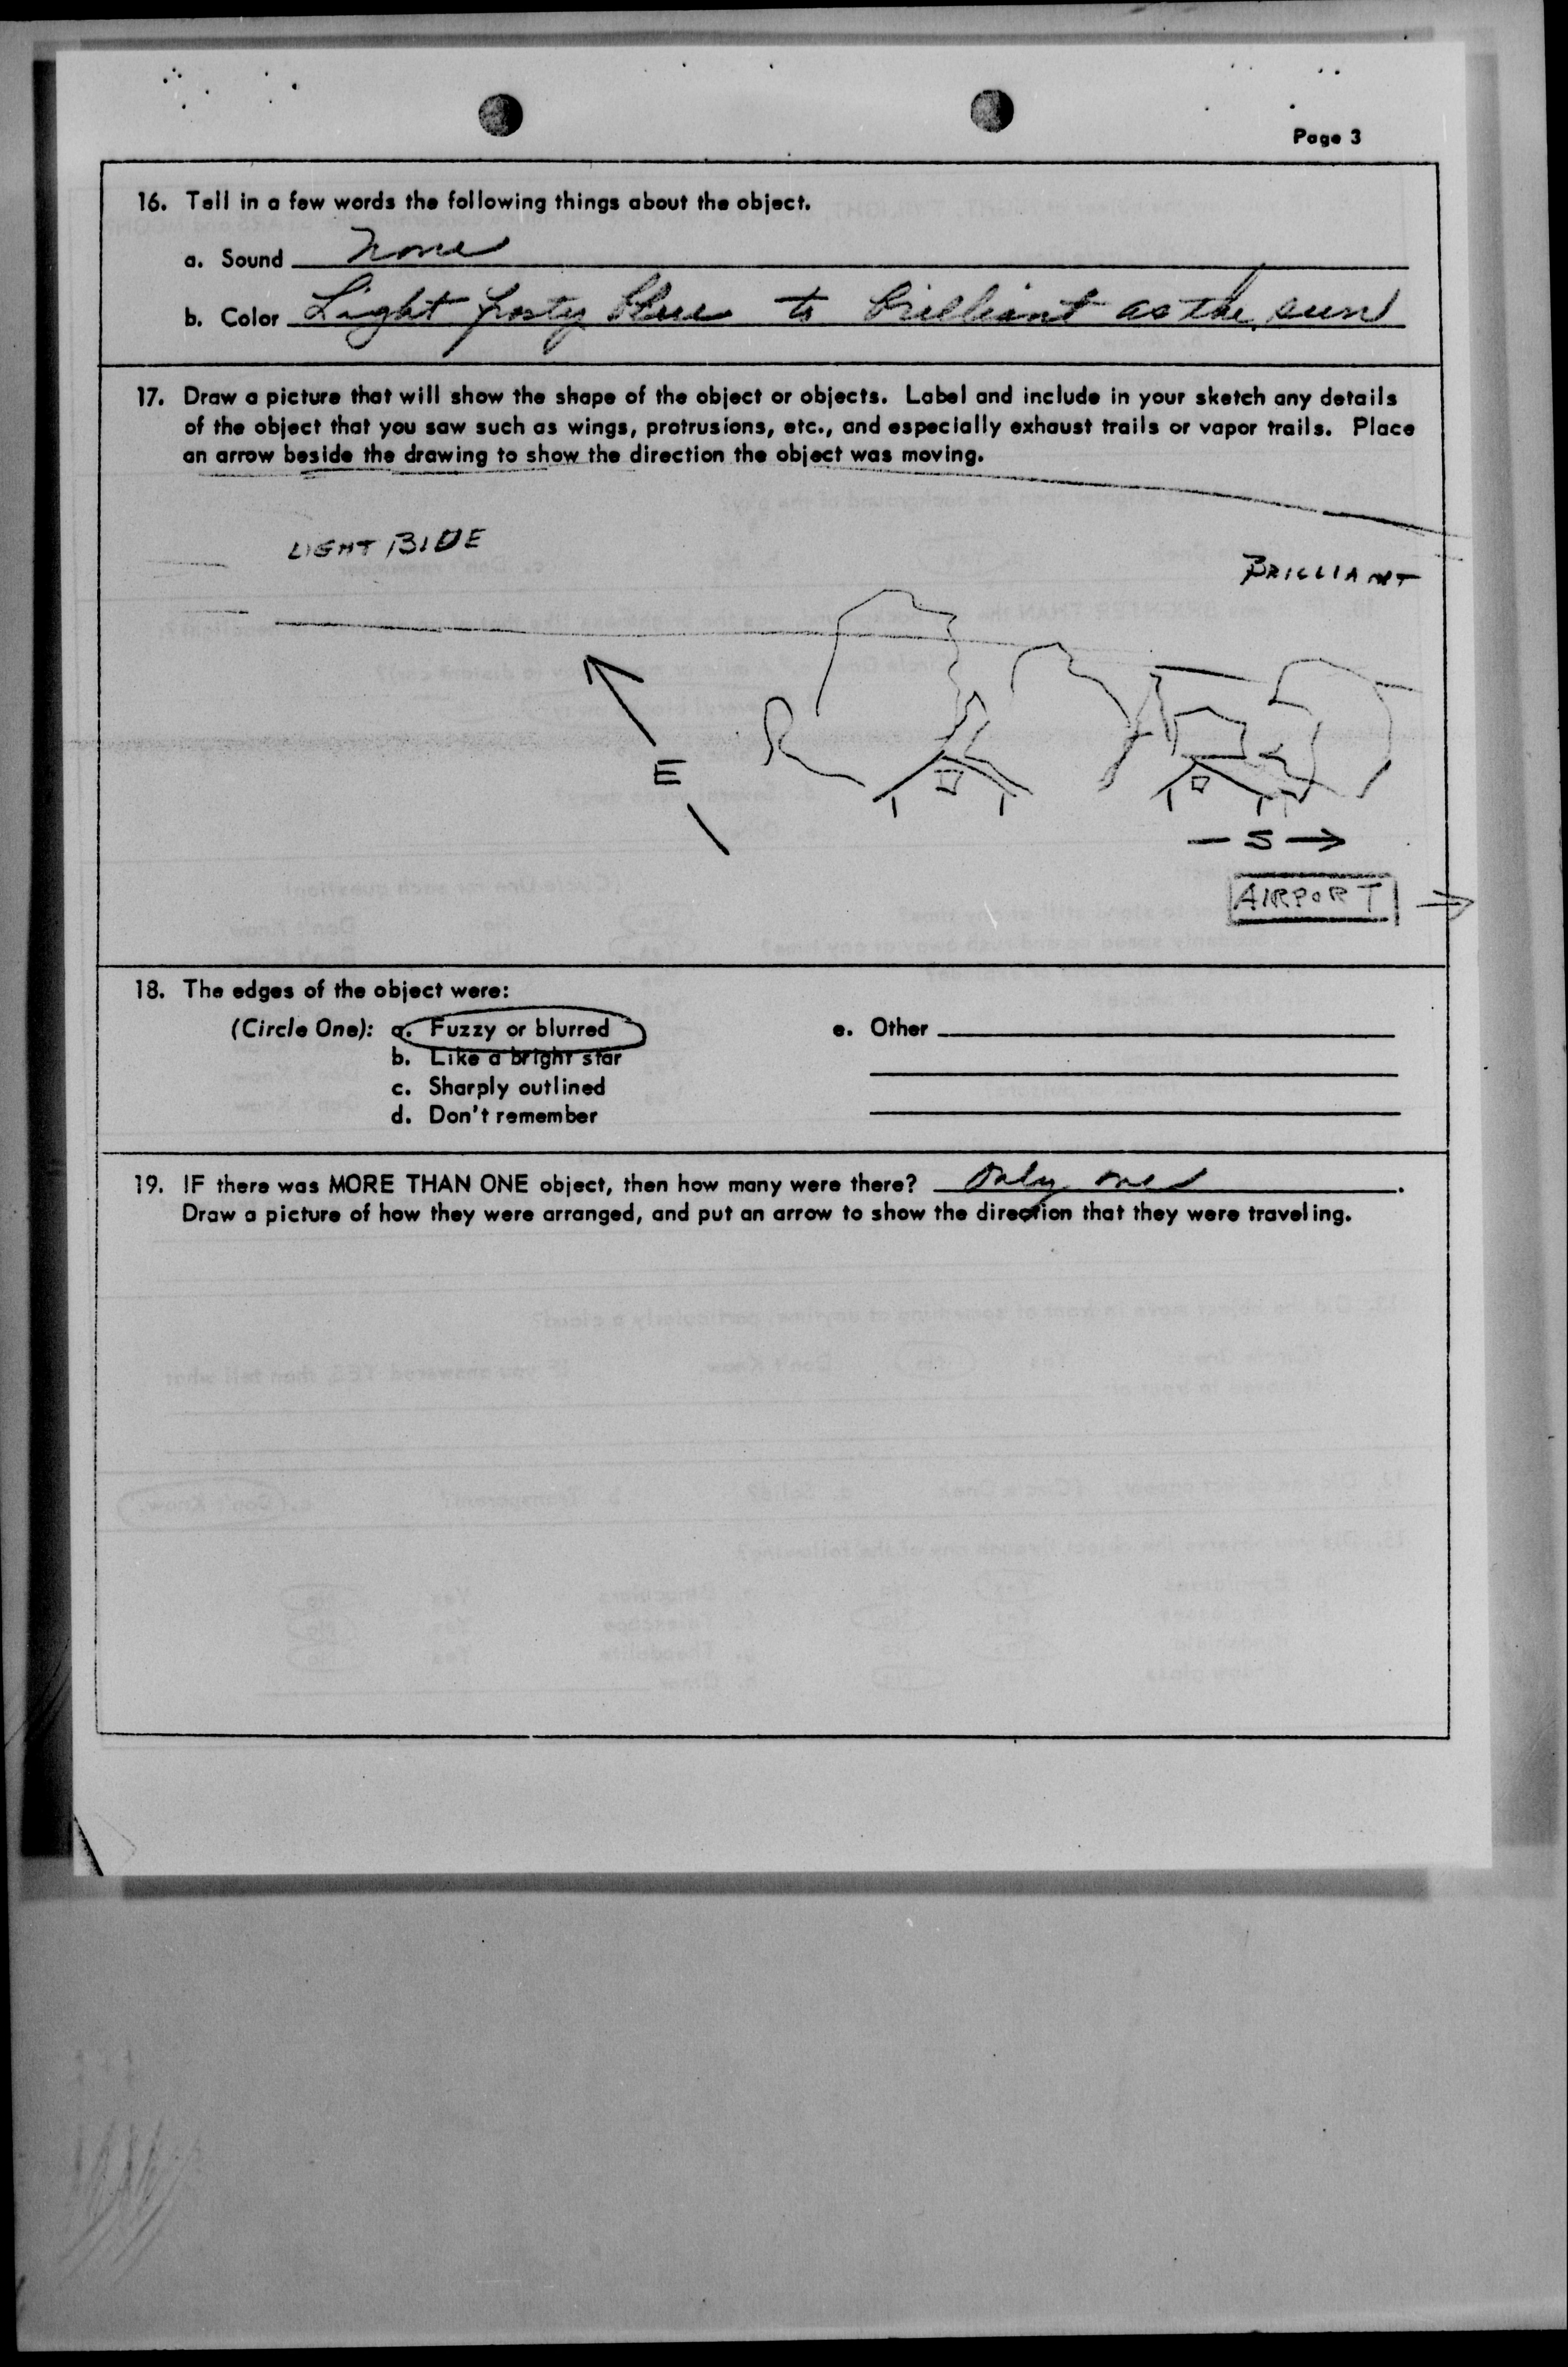 Page 3
16. Tell in a few words the following things about the object.
a. Sound None
b. Color Light frosty blue to brilliant as the sun
17. Draw a picture that will show the shape of the object or objects. Label and include in your sketch any details
of the object that you saw such as wings, protrusions, etc., and especially exhaust trails or vapor trails. Place
an arrow beside the drawing to show the direction the object was moving.
LIGHT BLUE
BRILLIANT
E
S
AIRPORT
18. The edges of the object were:
(Circle One): a. Fuzzy or blurred
b. Like a bright star
c. Sharply outlined
d. Don't remember
e. Other
19. IF there was MORE THAN ONE object, then how many were there? Only one.
Draw a picture of how they were arranged, and put an arrow to show the direction that they were traveling.